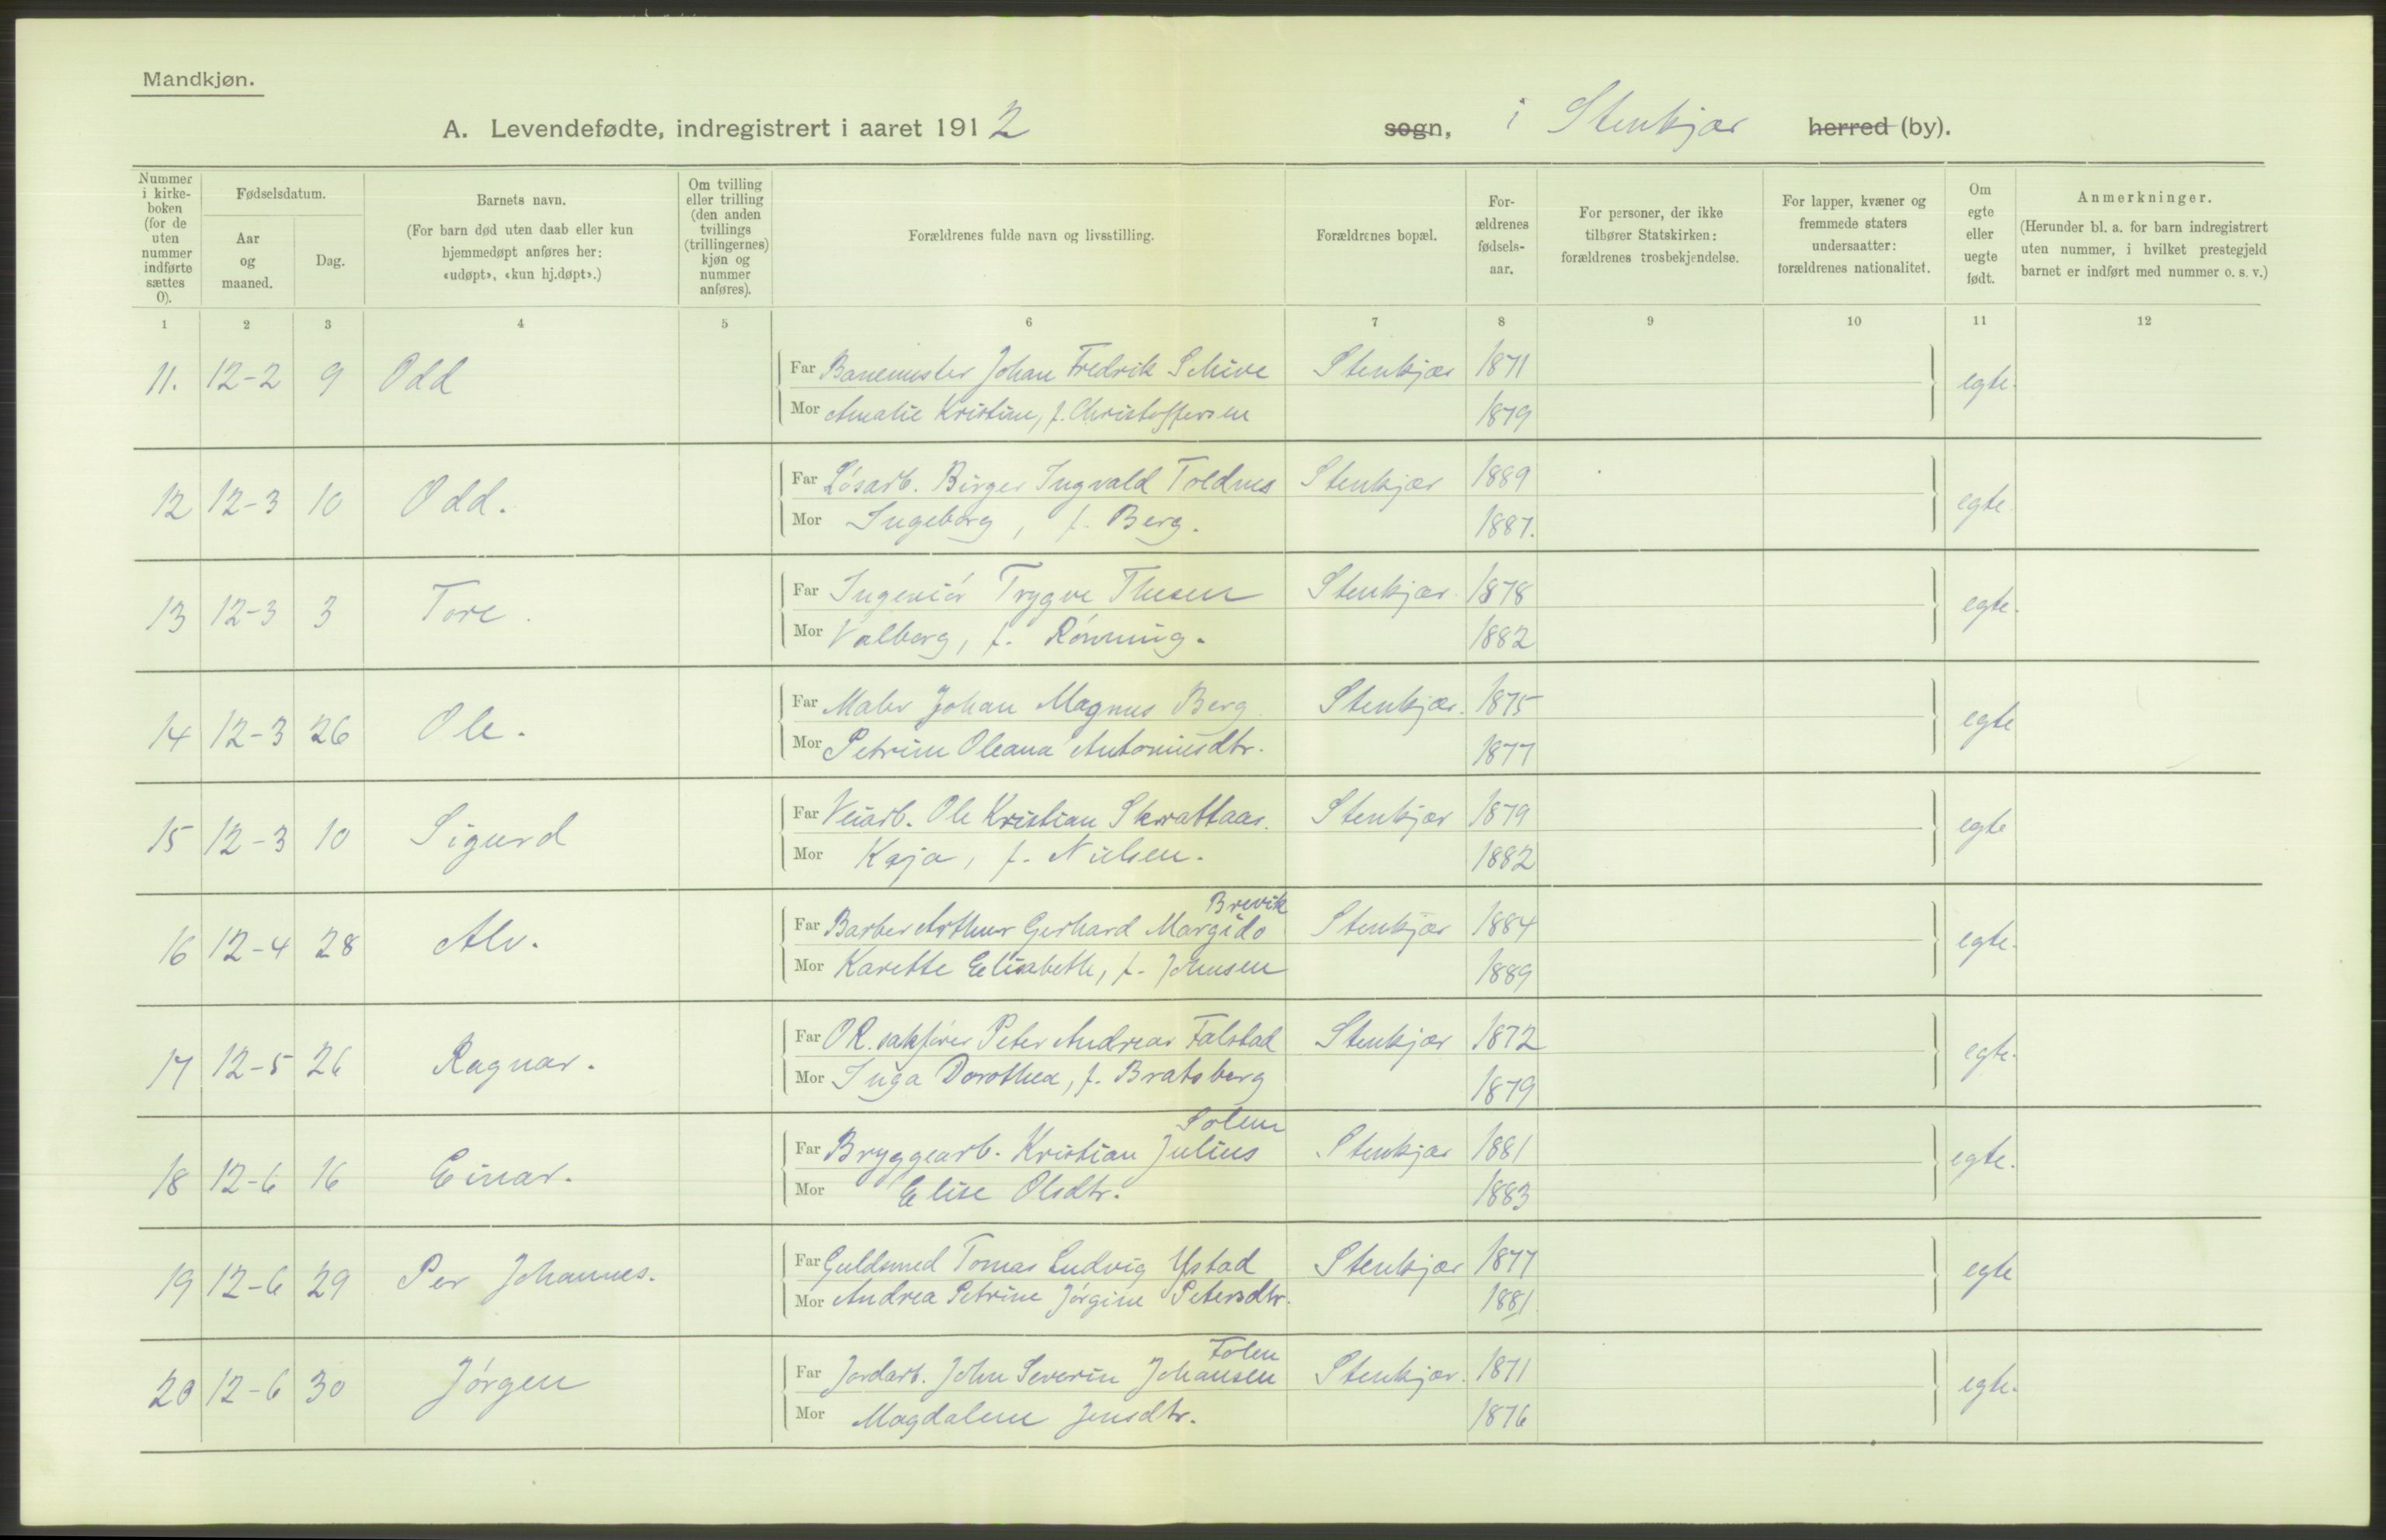 Mandkjøn.
A. Levendefødte, indregistrert i aaret 1912 sogn, i Stenkjær herred (by).
Nummer i kirke-boken (for de uten nummer indførte sættes 0).
Fødselsdatum.
Aar og maaned.
Dag.
Barnets navn.
(For barn død uten daab eller kun hjemmedøpt anføres her: «udøpt», «kun hj.døpt».)
Om tvilling eller trilling (den anden tvillings (trillingernes) kjøn og nummer anføres).
Forældrenes fulde navn og livsstilling.
Forældrenes bopæl.
For-ældrenes fødsels-aar.
For personer, der ikke tilhører Statskirken: forældrenes trosbekjendelse.
For lapper, kvæner og fremmede staters undersaatter: forældrenes nationalitet.
Om egte eller uegte født.
Anmerkninger.
(Herunder bl. a. for barn indregistrert uten nummer, i hvilket prestegjeld barnet er indført med nummer o. s. v.)
1 2 3 4 5 6 7 8 9 10 11 12
11. 12-2 9 Odd Far Banemester Johan Fredrik Schive Stenkjær 1871 egte.
Mor Amalie Kristine, f. Christoffersen 1879
12 12-3 10 Odd. Far Løsarb. Birger Ingvald Toldnes Stenkjær 1889 egte
Mor Ingeborg, f. Berg. 1887.
13 12-3 3 Tore. Far Ingeniør Trygve Thesen Stenkjær 1878 egte.
Mor Valborg, f. Rønning. 1882
14 12-3 26 Ole. Far Maler Johan Magnus Berg Stenkjær. 1875 egte
Mor Petrine Oleana Antoniusdtr. 1877
15 12-3 10 Sigurd Far Veiarb. Ole Kristian Skrattaas. Stenkjær 1879 egte
Mor Kaja, f. Nielsen. 1882
Brevik
16 12-4 28 Alv. Far Barber Arthur Gerhard Margido Stenkjær 1884 egte.
Mor Karette Elisabeth, f. Johnsen 1889
17 12-5 26 Ragnar. Far OR.sakfører Peter Andreas Falstad Stenkjær 1872 egte.
Mor Inga Dorothea, f. Bratsberg 1879
Solem
18 12-6 16 Einar. Far Bryggearb. Kristian Julius Stenkjær 1881 egte.
Mor Elise Olsdtr. 1883
19 12-6 29 Per Johannes. Far Guldsmed Tomas Ludvig Ystad Stenkjær 1877 egte
Mor Andrea Petrine Jørgine Petersdtr. 1881
Folen
20 12-6 30 Jørgen Far Jordarb. John Severin Johansen Stenkjær. 1871 egte.
Mor Magdalene Jensdtr. 1876